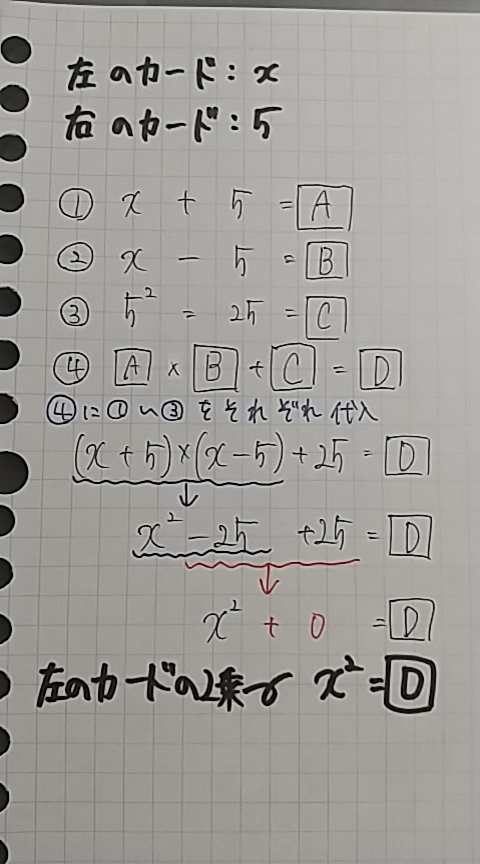 左のカード:x
右のカード:5
① x + 5 = A
② x - 5 = B
③ 5² = 25 = C
④ A × B + C = D
④に①〜③をそれぞれ代入
(x + 5)×(x - 5) + 25 = D
x² - 25 + 25 = D
x² + 0 = D
左のカードの2乗 x² = D